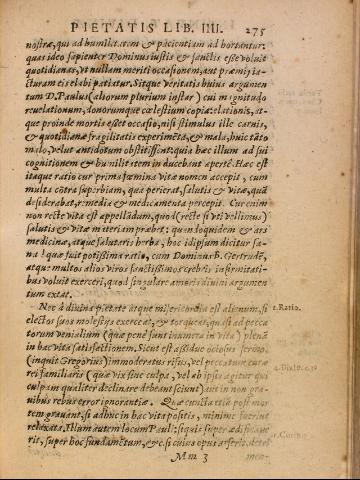 PIETATIS LIB. IIII. 275
nostræ, qui ad humilitatem & pacientiam ad hortantur:
quas ideo sapienter Dominus iustis & sanctis esse voluit
quotidianas, vt nullam meriti occasionem, aut præmij ia-
cturam eis elabi patiatur. Sitque veritatis huius argumen
tum D. Paulus (aliorum plurium instar) cui magnitudo
reuelationum, donorumque cælestium copia: elationis, at-
que proinde mortis esset occasio, nisi stimulus ille carnis,
& quotidianæ fragilitatis experimēta, & mala, huic tāto
malo, velut antidotum obstitissent: quia hæc illum ad sui
cognitionem & humilitatem inducebant apertè. Hæc est
itaque ratio cur prima fæmina vitæ nomen accepit, cum
multa cōtra superbiam, qua perierat, salutis & vitæ, quā
desiderabat, remedia & medicamenta percepit. Cur enim
non rectè vita est appellādum, quod (rectè si vti vellimus)
salutis & vitæ materiam præbet: quan loquidem & ars
medicinæ, atque salutaris herba, hoc idipsum dicitur sa-
na? quæ fuit potissima ratio, cum Dominus b. Gertrudē,
atque multos alios viros sanctissimos crebris infirmitati-
bus voluit exerceri, quod singulare amoris diuini argumen
tum extat.
Nec à diuina pietate atque misericordia est alienum, si 2. Ratio.
electos suos molestijs exerceat, & torqueat, quasi ad pecca
torum venialium (quæ penè sunt innumera in vita) plenā
in hac vita satisfactionem. Sicut est assiduè ociosus sermo,
(inquit Gregorius) immoderatus risus, vel peccatum curæ
rei familiaris (quæ vix sine culpa, vel ab ipsis agitur qui
culpam qualiter declinare debeant sciunt) aut in non gra-
uibus rebus error ignorantiæ. Quæ cuncta etiā post mor
tem grauant, si adhuc in hac vita positis, minimè fuerint
relaxata. Illum autem locum Pauli: siquis super ædificaue
rit, super hoc fundamētum, &c. si cuius opus arserit, detri
Mm 3 men-